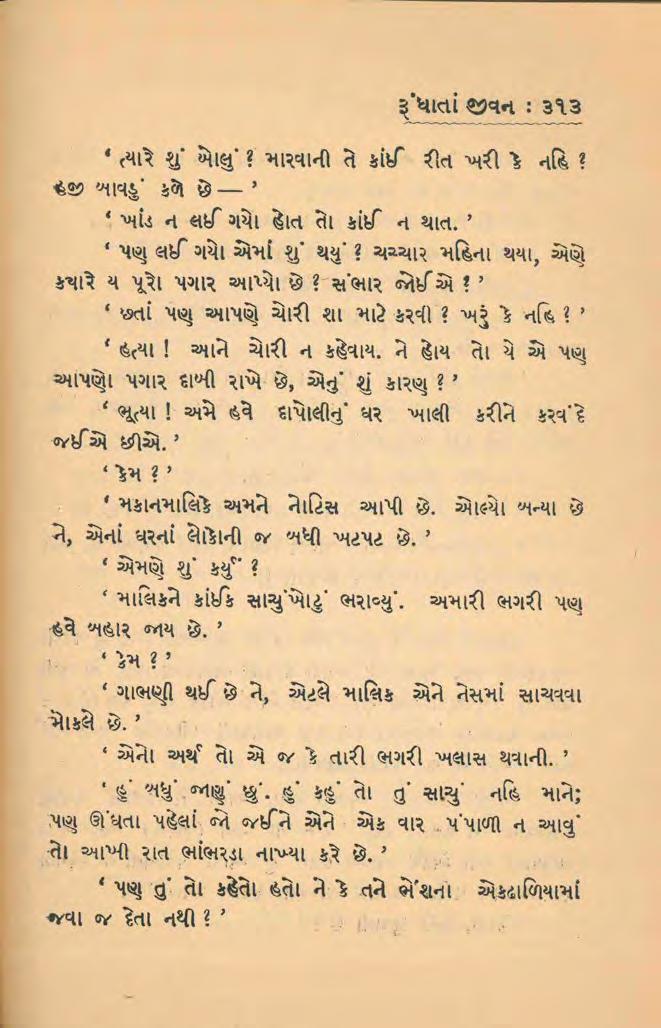 રૂંધાતાં જીવન : ૩૧૩
‘ ત્યારે શું ખોલું ? મારવાની તે કાંઈ રીત ખરી કે નહિ ?
હજી બાવડું કળે છે — ’
‘ ખાંડ ન લઈ ગયો હોત તો કાંઈ ન થાત. ’
‘ પણ લઈ ગયો એમાં શું થયું ? ચચ્ચાર મહિના થયા, એણે
કયારે ય પૂરો પગાર આપ્યો છે ? સંભાર જોઈએ ? ’
‘ છતાં પણ આપણે ચોરી શા માટે કરવી ? ખરું કે નહિ ? ’
‘ હત્યા ! આને ચોરી ન કહેવાય. ને હોય તો યે એ પણ
આપણો પગાર દાબી રાખે છે, એનું શું કારણ ? ’
‘ ભૂત્યા ! અમે હવે દાપોલીનું ઘર ખાલી કરીને કરવંદે
જઈએ છીએ. ’
‘ કેમ ? ’
‘ મકાનમાલિકે અમને નોટિસ આપી છે. ઓલ્યો બન્યા છે
ને, એનાં ઘરનાં લોકોની જ બધી ખટપટ છે. ’
‘ એમણે શું કર્યું ?
‘ માલિકને કાંઈક સાચુંખોટું ભરાવ્યું. અમારી ભગરી પણ
હવે બહાર જાય છે. ’
‘ કેમ ? ’
‘ ગાભણી થઈ છે ને, એટલે માલિક એને નેસમાં સાચવવા
મોકલે છે. ’
‘ એનો અર્થ તો એ જ કે તારી ભગરી ખલાસ થવાની. ’
‘ હું બધું જાણું છું. હું કહું તો તું સાચું નહિ માને;
પણ ઊંઘતા પહેલાં જો જઈને એને એક વાર પંપાળી ન આવું
તો આખી રાત ભાંભરડા નાખ્યા કરે છે. ’
‘ પણ તું તો કહેતો હતો ને કે તને ભેંશના એકઢાળિયામાં
જવા જ દેતા નથી ? ’